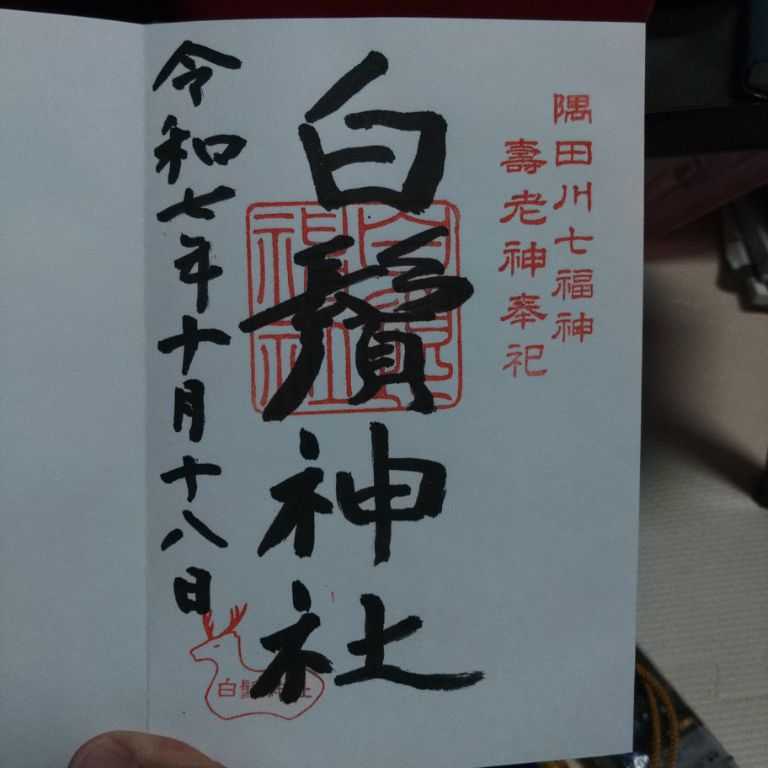 隅田川七福神
壽老神奉祀
白鬚神社
令和七年十月十八日
白鬚神社